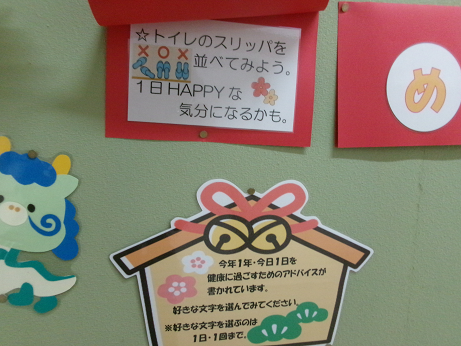 ☆トイレのスリッパを
×○×
並べてみよう。
1日HAPPYな
気分になるかも。
め
今年1年・今日1日を
健康に過ごすためのアドバイスが
書かれています。
好きな文字を選んでみてください。
※好きな文字を選ぶのは
1日・1回まで。